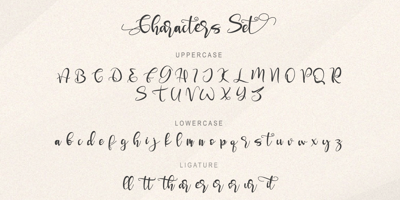 Characters Set
UPPERCASE
A B C D E F G H I J K L M N O P Q R
S T U V W X Y Z
LOWERCASE
a b c d e f g h i j k l m n o p q r s t u v w x y z
LIGATURE
ll tt th